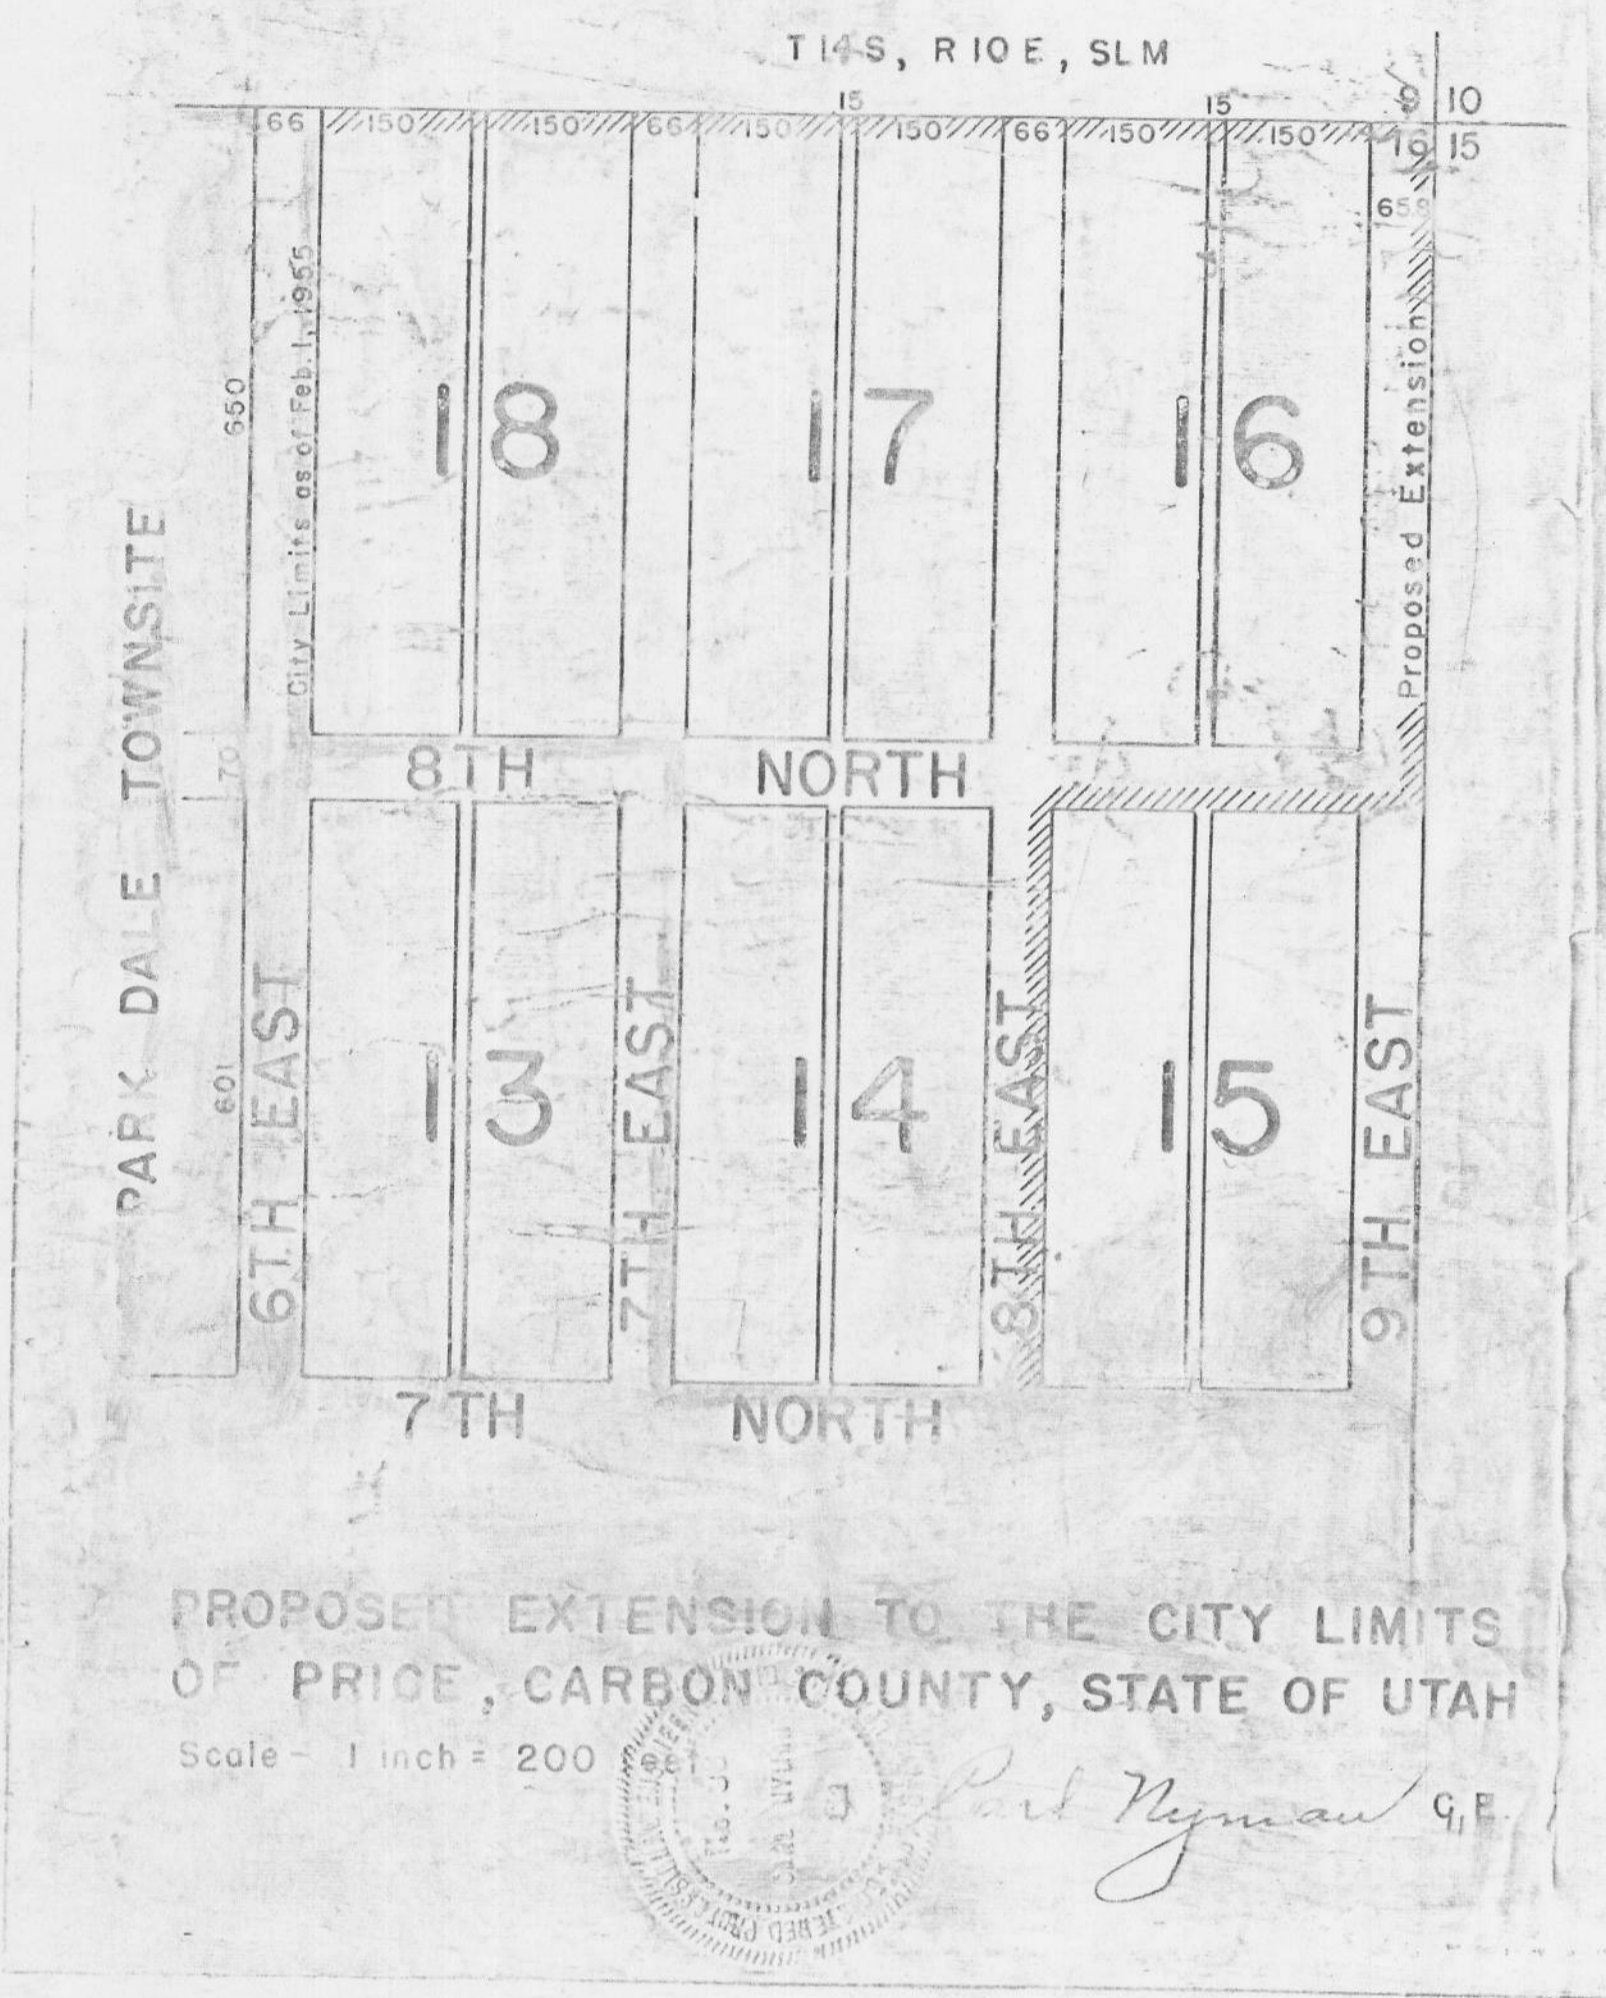 T14S, R10E, SLM
9 10
15 15
66 150 150 66 150 150 66 150 150 16 15
65.8
650
City Limits as of Feb. 1, 1955
18 17 16
Proposed Extension
PARK DALE TOWNSITE
70
8TH NORTH
601
6TH EAST
13
7TH EAST
14
8TH EAST
15
9TH EAST
7TH NORTH
PROPOSED EXTENSION TO THE CITY LIMITS
OF PRICE, CARBON COUNTY, STATE OF UTAH
Scale - 1 inch = 200
Carl Nyman C.E.